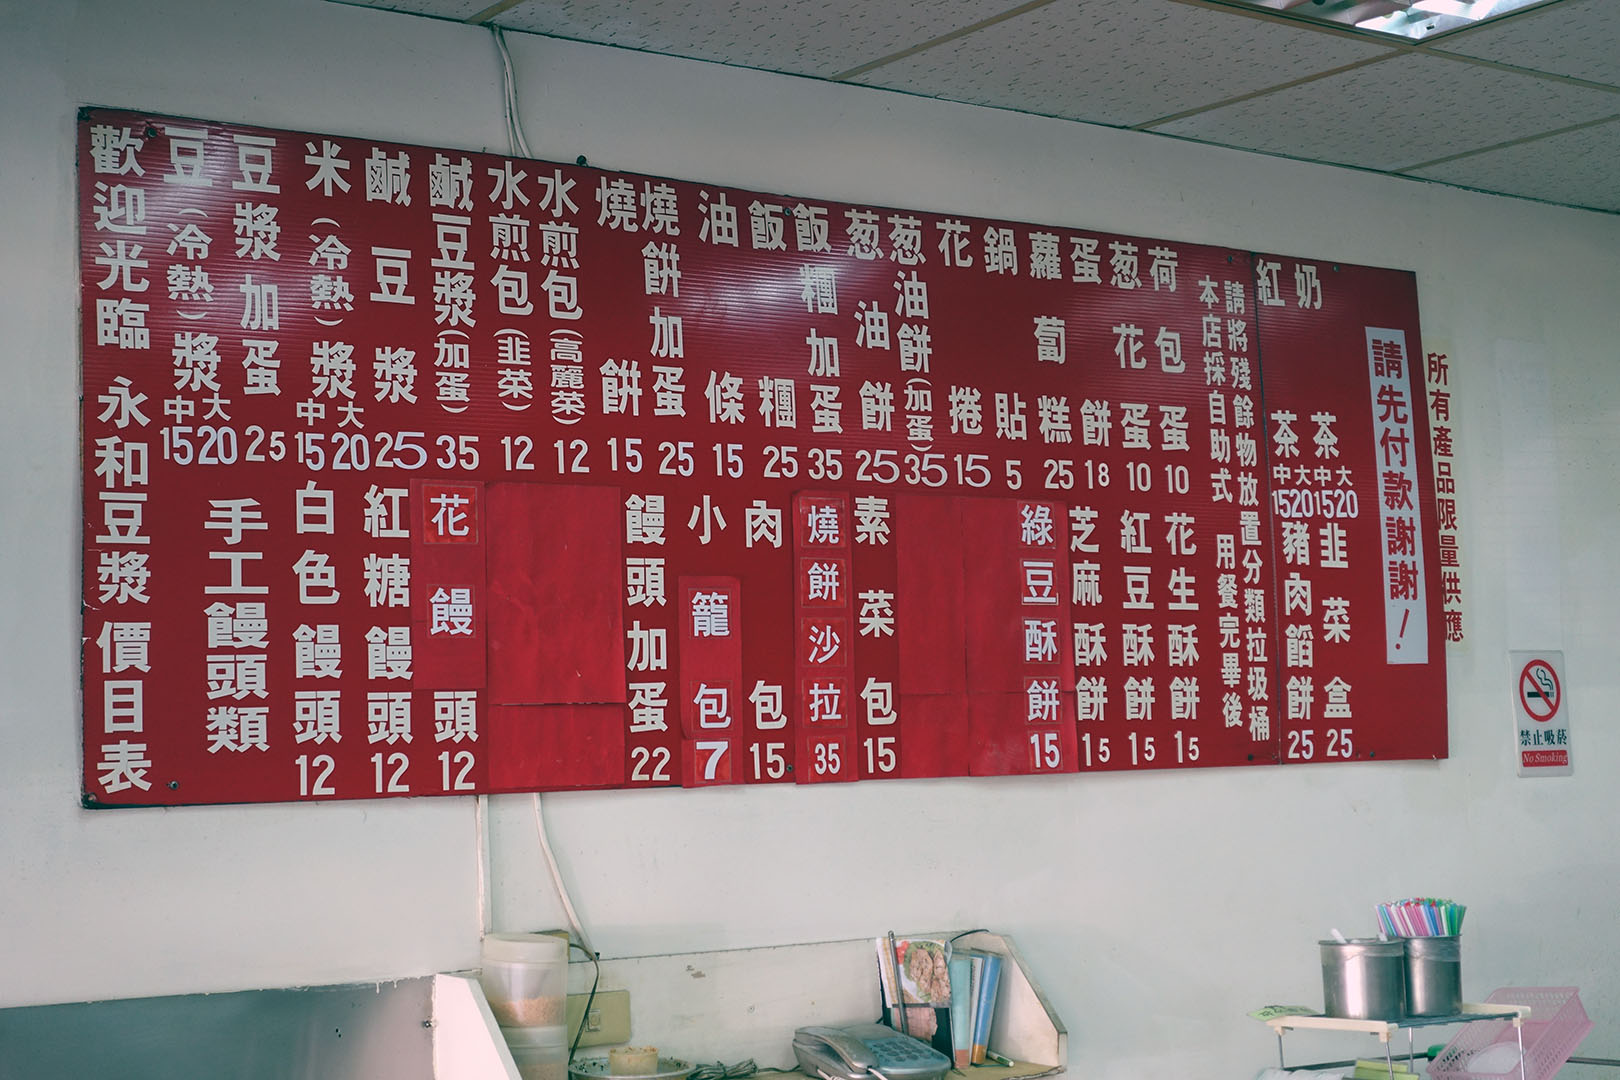 歡迎光臨 永和豆漿 價目表
豆(冷熱)漿 中15 大20
豆漿加蛋 25
米(冷熱)漿 中15 大20
鹹豆漿 25
鹹豆漿(加蛋) 35
水煎包(韭菜) 12
水煎包(高麗菜) 12
燒餅 15
燒餅加蛋 25
油條 15
飯糰 25
飯糰加蛋 35
葱油餅 25
葱油餅(加蛋) 35
花捲 15
鍋貼 5
蘿蔔糕 25
蛋餅 18
葱花蛋 10
荷包蛋 10
手工饅頭類
白色饅頭 12
紅糖饅頭 12
花饅頭 12
饅頭加蛋 22
小籠包 7
肉包 15
燒餅沙拉 35
素菜包 15
綠豆酥餅 15
芝麻酥餅 15
紅豆酥餅 15
花生酥餅 15
本店採自助式 用餐完畢後
請將殘餘物放置分類垃圾桶
紅茶 中15 大20
奶茶 中15 大20
豬肉餡餅 25
韭菜盒 25
請先付款謝謝！
所有產品限量供應
禁止吸菸
No Smoking